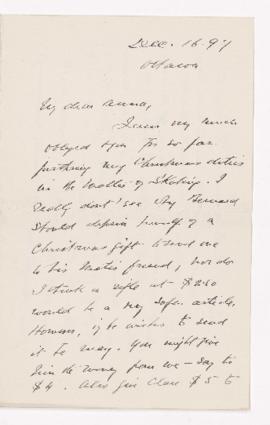 Dec. 16. 97
Ottawa
My dear
I am very much
obliged for so far
furthering my Christmas duties
in the matter of Skating. I
really don't see why Bernard
should deprive himself of a
Christmas gift to send me
to his friend, nor do
I think a rifle at $2.50
would be a very safe article.
However, if he wishes to send
it he may. You might give
him the money from me — say to
$4. Also give Clare $5 to